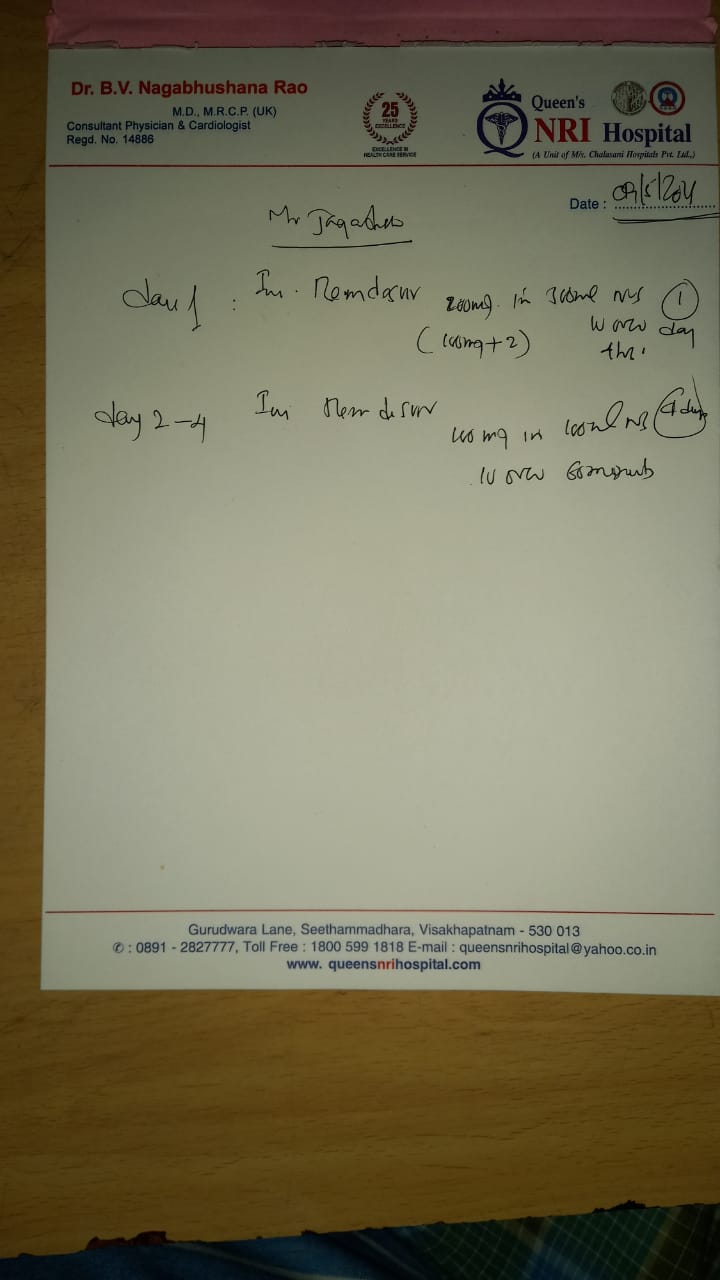 Dr. B.V. Nagabhushana Rao
M.D., M.R.C.P. (UK)
Consultant Physician & Cardiologist
Regd. No. 14886
25
YEARS
EXCELLENCE
EXCELLENCE IN
HEALTH CARE SERVICE
Queen's
NRI Hospital
(A Unit of M/s. Chalasani Hospitals Pvt. Ltd.,)
Date :
Mr
day 1 : 200mg in 300ml NS 1
(100mg + 2) IV over day
day 2-4 100 mg in 100ml NS
IV over
Gurudwara Lane, Seethammadhara, Visakhapatnam - 530 013
✆ : 0891 - 2827777, Toll Free : 1800 599 1818 E-mail : queensnrihospital@yahoo.co.in
www. queensnrihospital.com